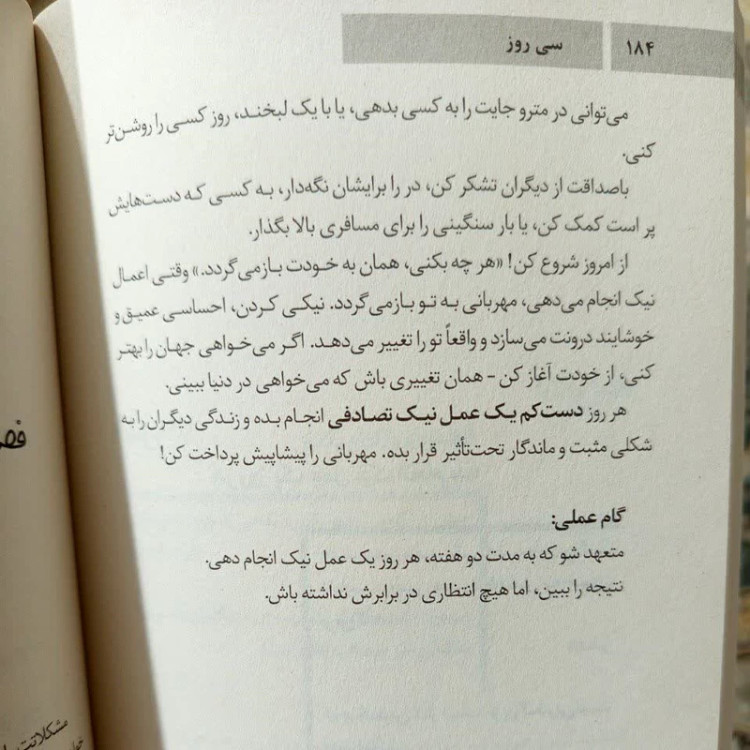 ۱۸۴ سی روز
می‌توانی در مترو جایت را به کسی بدهی، یا با یک لبخند، روز کسی را روشن‌تر
کنی.
باصداقت از دیگران تشکر کن، در را برایشان نگه‌دار، به کسی که دست‌هایش
پر است کمک کن، یا بار سنگینی را برای مسافری بالا بگذار.
از امروز شروع کن! «هر چه بکنی، همان به خودت بازمی‌گردد.» وقتی اعمال
نیک انجام می‌دهی، مهربانی به تو بازمی‌گردد. نیکی کردن، احساسی عمیق و
خوشایند درونت می‌سازد و واقعاً تو را تغییر می‌دهد. اگر می‌خواهی جهان را بهتر
کنی، از خودت آغاز کن - همان تغییری باش که می‌خواهی در دنیا ببینی.
هر روز دست‌کم یک عمل نیک تصادفی انجام بده و زندگی دیگران را به
شکلی مثبت و ماندگار تحت‌تأثیر قرار بده. مهربانی را پیشاپیش پرداخت کن!
گام عملی:
متعهد شو که به مدت دو هفته، هر روز یک عمل نیک انجام دهی.
نتیجه را ببین، اما هیچ انتظاری در برابرش نداشته باش.
مشکلاتت